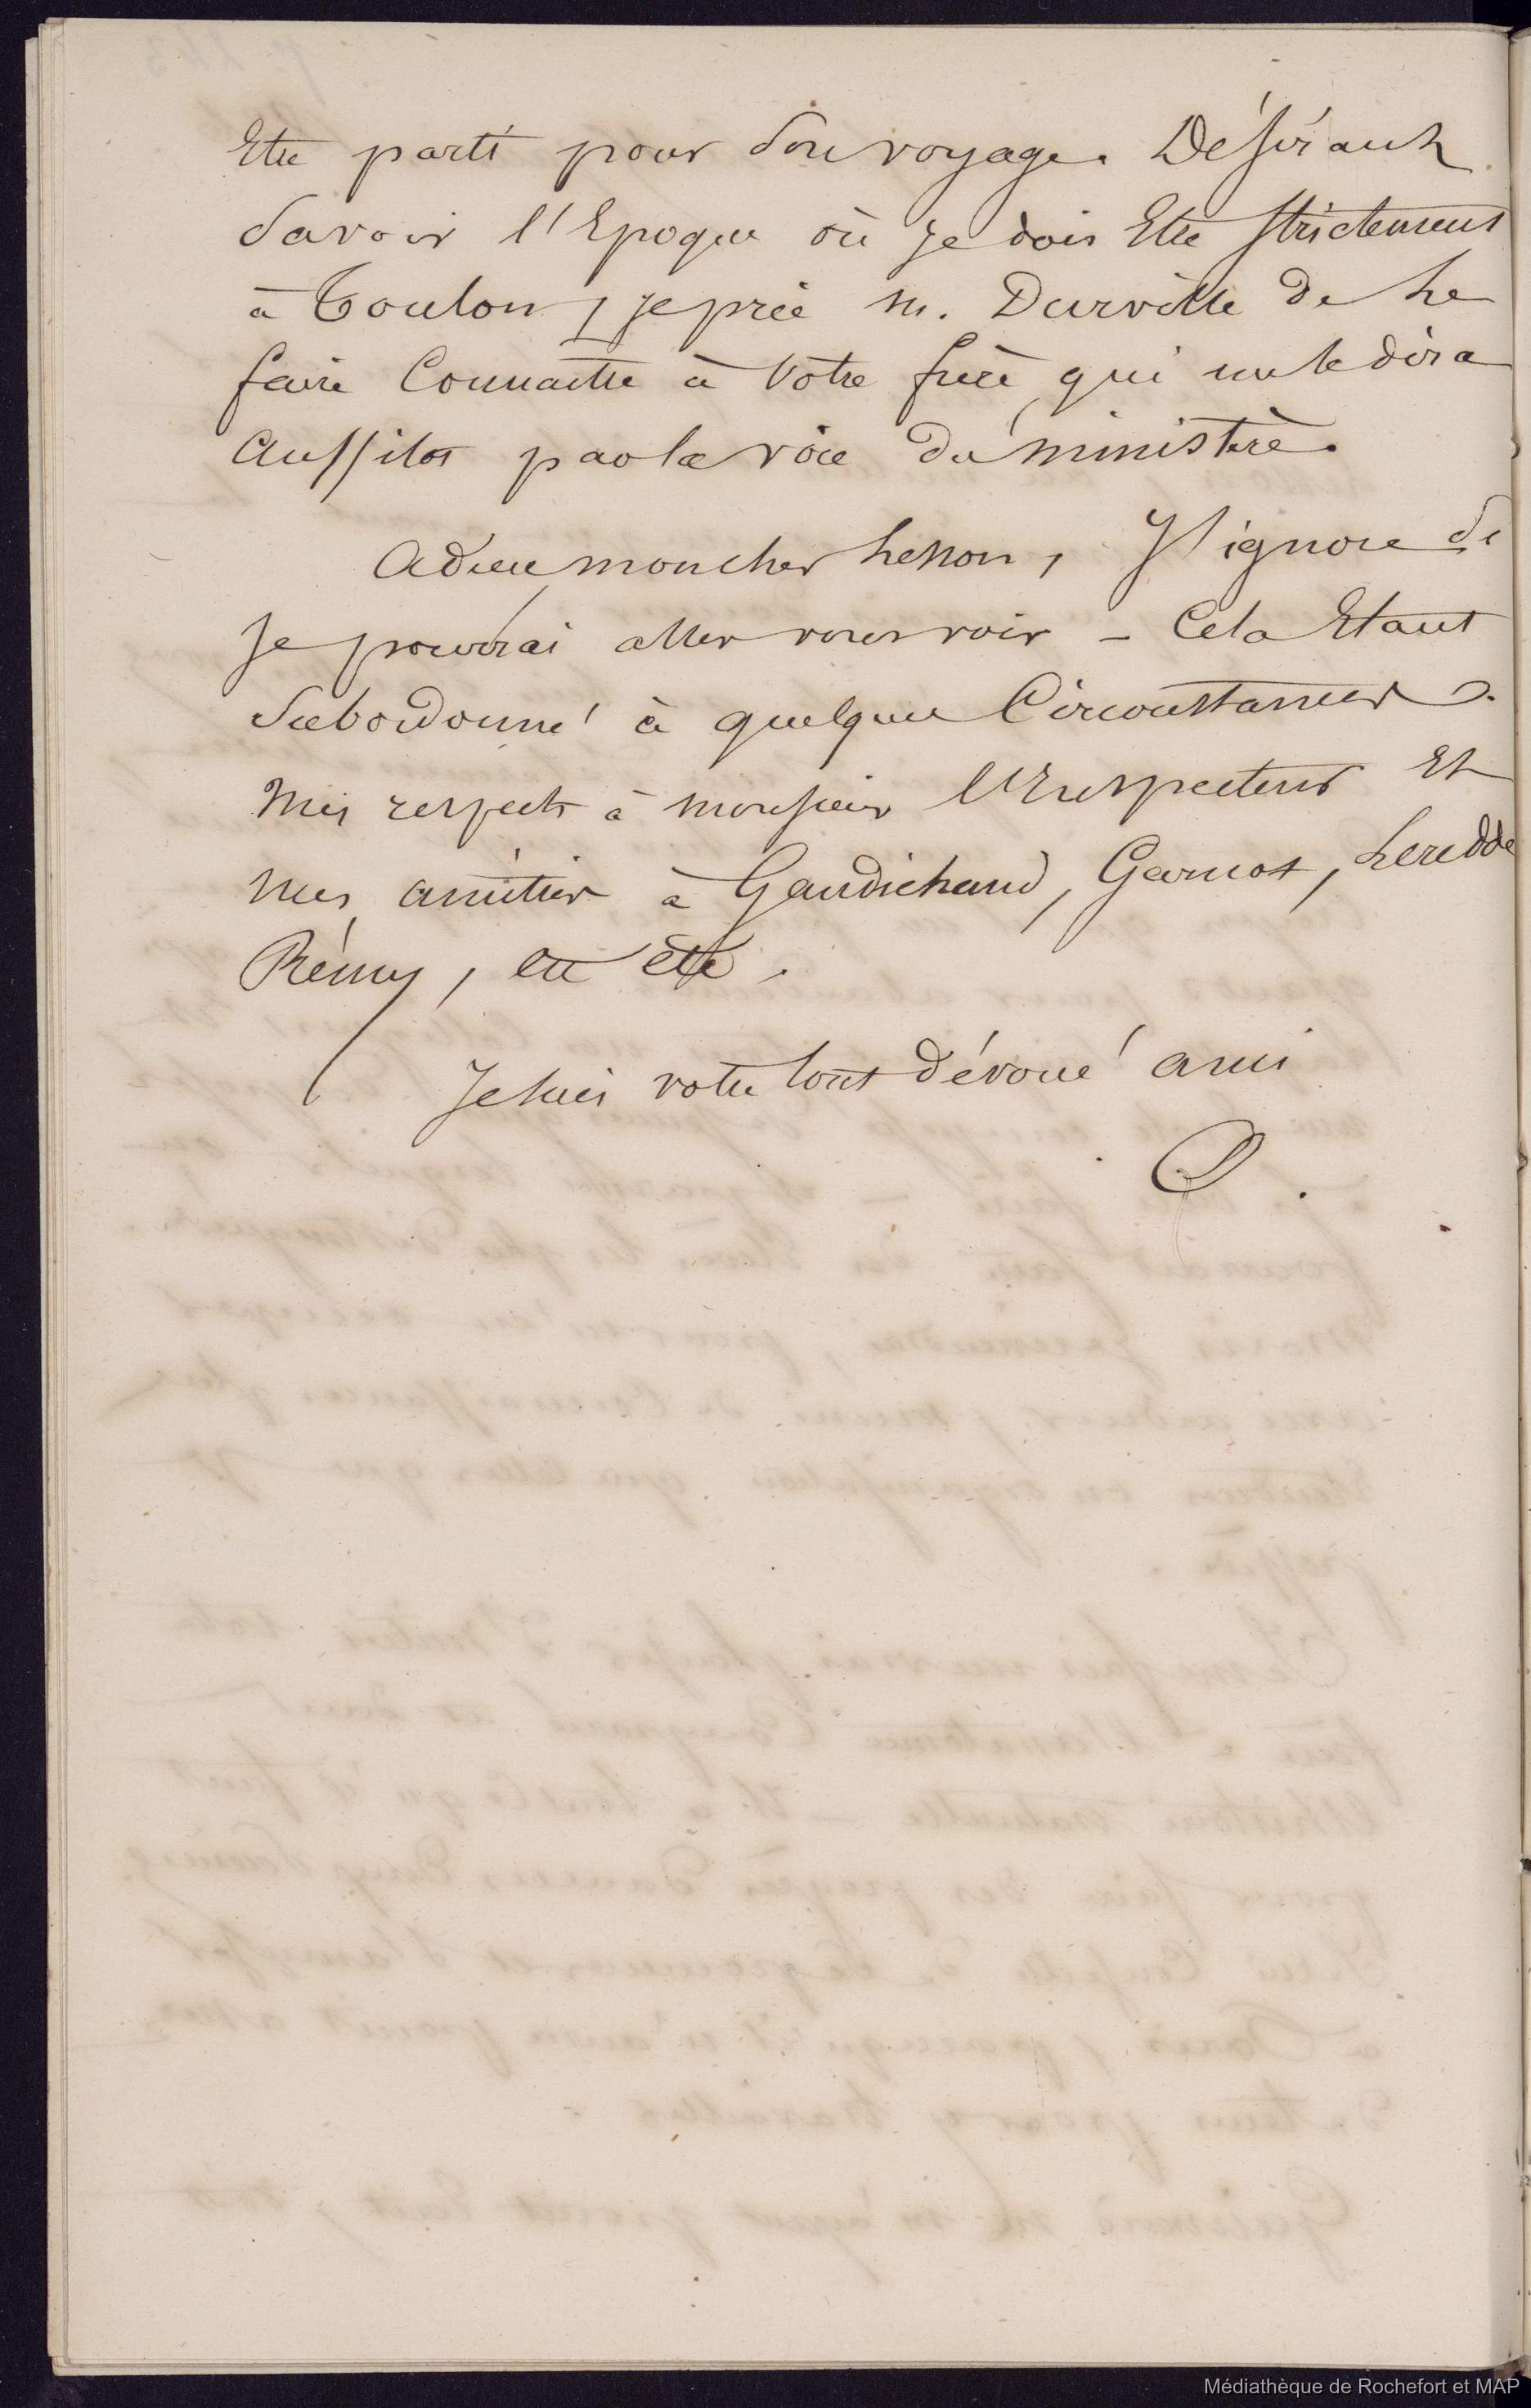 Etre parti pour son voyage. Désirant
savoir l'Epoque où je dois Etre strictement
à Toulon, je prie M. Durville de le
faire Connaitre à Votre frère qui me le dira
Aussitot par la voie du ministère.
Adieu mon cher Lesson, J'ignore si
Je pourrai aller vous voir - Cela Etant
Subordonné à quelques Circonstances.
Mes respects à monsieur l'Inspecteur Et
mes amitiés à Gaudichaud, Garnot, Leredde
Rémy, etc etc.
Je suis votre tout dévoué ami
Médiathèque de Rochefort et MAP